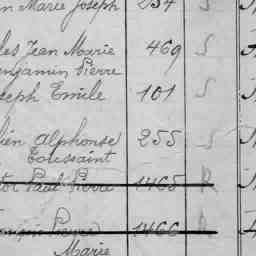 n Marie Joseph 234 S
les Jean Marie 469 S
enjamin Pierre
seph Emile 101 S
lien Alphonse 255 S
Toussaint
tor Paul Pierre 1465 R
ançois Pierre 1466 R
Marie